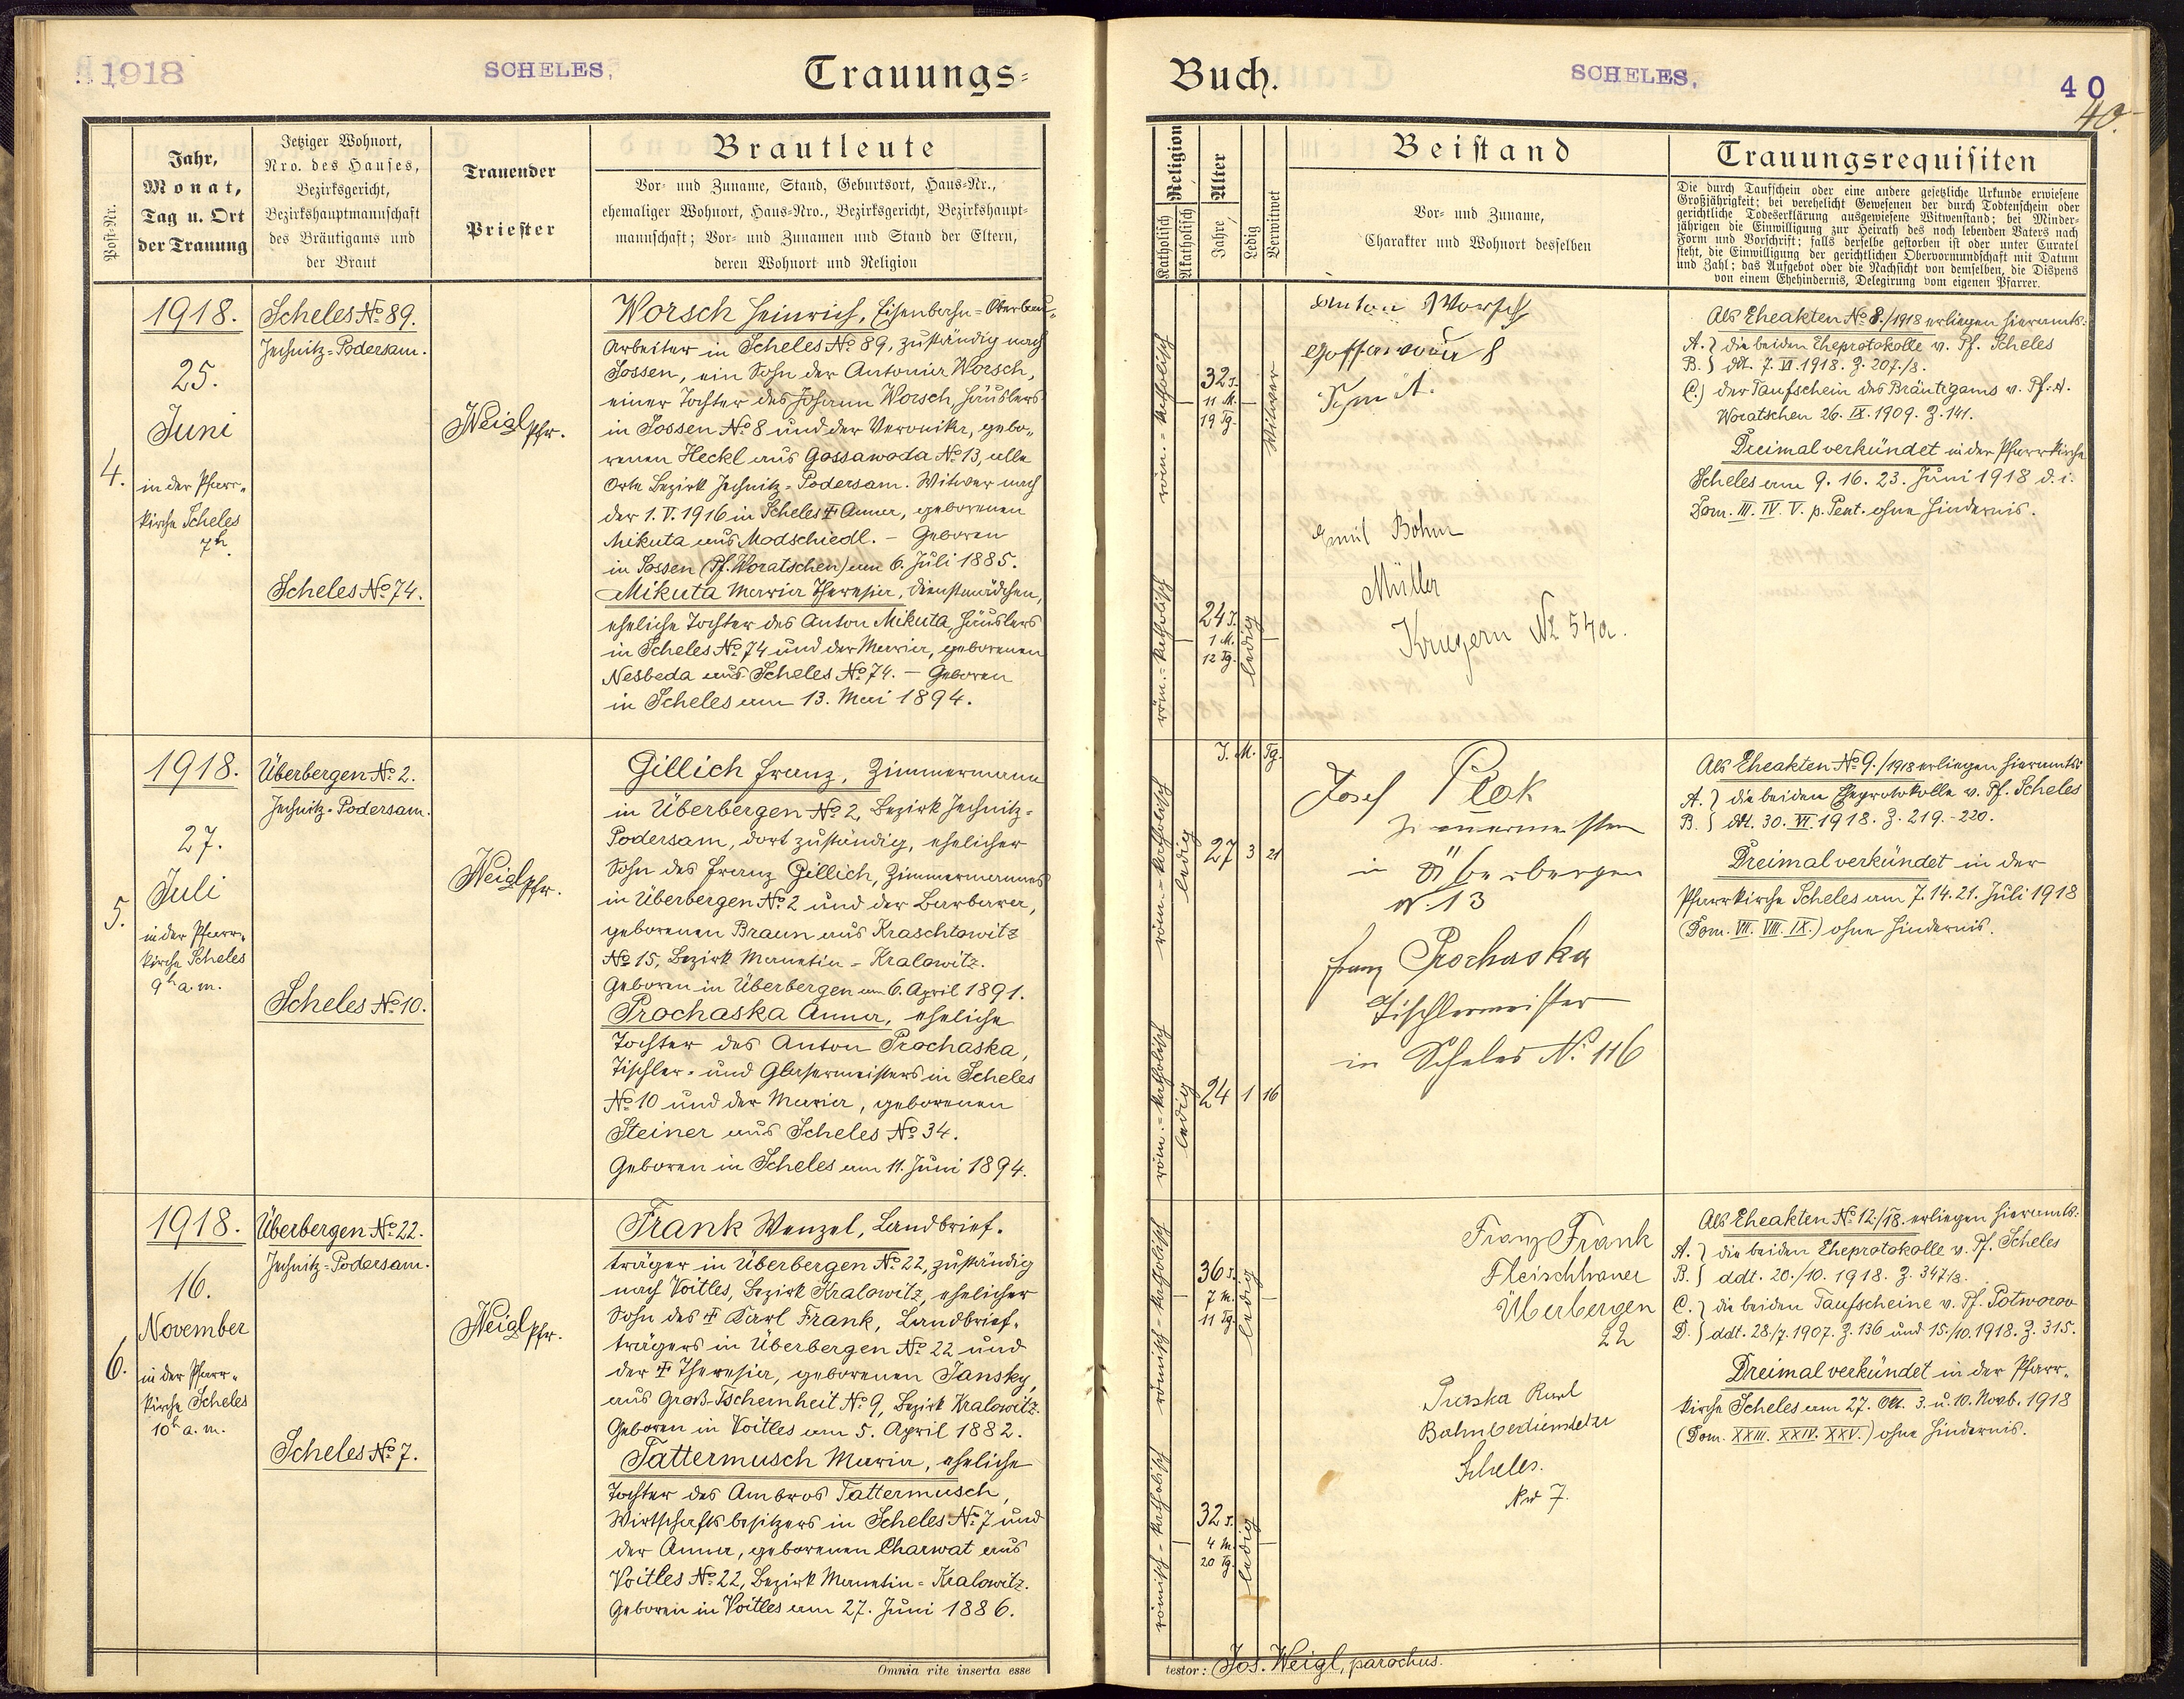 1918
SCHELES,
Trauungs-
Post-Nr.
Jahr,
Monat,
Tag u. Ort
der Trauung
Jetziger Wohnort,
Nro. des Hauses,
Bezirksgericht,
Bezirkshauptmannschaft
des Bräutigams und
der Braut
Trauender
Priester
Brautleute
Vor- und Zuname, Stand, Geburtsort, Haus-Nr.,
ehemaliger Wohnort, Haus-Nro., Bezirksgericht, Bezirkshaupt-
mannschaft; Vor- und Zunamen und Stand der Eltern,
deren Wohnort und Religion
4.
1918.
25.
Juni
in der Pfarr-
kirche Scheles
7h.
Scheles No 89.
Jechnitz-Podersam.
Scheles No 74.
Weigl Pfr.
Worsch Heinrich, Eisenbahn-Oberbau-
arbeiter in Scheles No 89, zuständig nach
Sossen, ein Sohn der Antonia Worsch,
einer Tochter des Johann Worsch, Häuslers
in Sossen No 8 und der Veronika, gebo-
renen Heckl aus Gossawoda No 13, alle
Orte Bezirk Jechnitz-Podersam. Witwer nach
der 1. V. 1916 in Scheles † Anna, geborenen
Mikuta aus Modschiedl. - Geboren
in Sossen (Pf. Woratschen) am 6. Juli 1885.
Mikuta Maria Theresia, Dienstmädchen,
eheliche Tochter des Anton Mikuta, Häuslers
in Scheles No 74 und der Maria, geborenen
Nesbeda aus Scheles No 74. - Geboren
in Scheles am 13. Mai 1894.
5.
1918.
27.
Juli
in der Pfarr-
kirche Scheles
9h a.m.
Überbergen No 2.
Jechnitz-Podersam.
Scheles No 10.
Weigl Pfr.
Gillich Franz, Zimmermann
in Überbergen No 2, Bezirk Jechnitz-
Podersam, dort zuständig, ehelicher
Sohn des Franz Gillich, Zimmermannes
in Überbergen No 2 und der Barbara,
geborenen Braun aus Kraschtowitz
No 15, Bezirk Manetin-Kralowitz.
Geboren in Überbergen am 6. April 1891.
Prochaska Anna, eheliche
Tochter des Anton Prochaska,
Tischler- und Glasermeisters in Scheles
No 10 und der Maria, geborenen
Steiner aus Scheles No 34.
Geboren in Scheles am 11. Juni 1894.
6.
1918.
16.
November
in der Pfarr-
kirche Scheles
10h a.m.
Überbergen No 22.
Jechnitz-Podersam.
Scheles No 7.
Weigl Pfr.
Frank Wenzel, Landbrief-
träger in Überbergen No 22, zuständig
nach Voitles, Bezirk Kralowitz, ehelicher
Sohn des † Karl Frank, Landbrief-
trägers in Überbergen No 22 und
der † Theresia, geborenen Jansky,
aus Groß-Tschernheit No 9, Bezirk Kralowitz.
Geboren in Voitles am 5. April 1882.
Tattermusch Maria, eheliche
Tochter des Ambros Tattermusch,
Wirtschaftsbesitzers in Scheles No 7 und
der Anna, geborenen Charwat aus
Voitles No 22, Bezirk Manetin-Kralowitz.
Geboren in Voitles am 27. Juni 1886.
Omnia rite inserta esse
Buch.
SCHELES,
40
40.
Religion
Katholisch
Akatholisch
Alter
Jahre
Ledig
Verwitwet
Beistand
Vor- und Zuname,
Charakter und Wohnort desselben
Trauungsrequisiten
Die durch Taufschein oder eine andere gesetzliche Urkunde erwiesene
Großjährigkeit; bei verehelicht Gewesenen der durch Todtenschein oder
gerichtliche Todeserklärung ausgewiesene Witwenstand; bei Minder-
jährigen die Einwilligung zur Heirath des noch lebenden Vaters nach
Form und Vorschrift; falls derselbe gestorben ist oder unter Curatel
steht, die Einwilligung der gerichtlichen Obervormundschaft mit Datum
und Zahl; das Aufgebot oder die Nachsicht von demselben, die Dispens
von einem Ehehindernis, Delegirung vom eigenen Pfarrer.
röm.-katholisch
32 J.
11 M.
19 Tg.
Witwer
Anton Worsch
Gossawoda 8
röm.-katholisch
24 J.
1 M.
12 Tg.
ledig
Emil Bohm
Müller
Krugern No 54a.
Als Eheakten No 8./1918 erliegen hieramts:
A. } die beiden Eheprotokolle v. Pf. Scheles
B. } ddt. 7. VI. 1918. Z. 207./8.
C.) der Taufschein des Bräutigams v. Pf. A.
Woratschen 26. IX. 1909. Z. 141.
Dreimal verkündet in der Pfarrkirche
Scheles am 9. 16. 23. Juni 1918 d. i.
Dom. III. IV. V. p. Pent. ohne Hindernis.
J. M. Tg.
röm.-katholisch
ledig
27 3 21
Josef Plok
Zimmermeister
in Überbergen
N. 13
röm.-katholisch
ledig
24 1 16
Franz Prochaska
Tischlermeister
in Scheles No 116
Als Eheakten No 9./1918 erliegen hieramts:
A. } die beiden Eheprotokolle v. Pf. Scheles
B. } ddt. 30. VI. 1918. Z. 219.-220.
Dreimal verkündet in der
Pfarrkirche Scheles am 7. 14. 21. Juli 1918
(Dom. VII. VIII. IX.) ohne Hindernis.
römisch-katholisch
36 J.
7 M.
11 Tg.
ledig
Franz Frank
Fleischhauer
Überbergen
22
römisch-katholisch
32 J.
4 M.
20 Tg.
ledig
Praska Karl
Bahnbediensteter
Scheles.
Nro 7.
Als Eheakten No 12./18. erliegen hieramts:
A. } die beiden Eheprotokolle v. Pf. Scheles
B. } ddt. 20./10. 1918. Z. 347/8.
C. } die beiden Taufscheine v. Pf. Potworov
D. } ddt. 28./7. 1907. Z. 136 und 15./10. 1918. Z. 315.
Dreimal verkündet in der Pfarr-
kirche Scheles am 27. Okt. 3. u. 10. Novb. 1918
(Dom. XXIII. XXIV. XXV.) ohne Hindernis.
testor: Jos. Weigl, parochus.